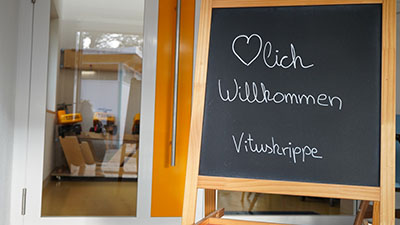 ♡lich
Willkommen
Vituskrippe